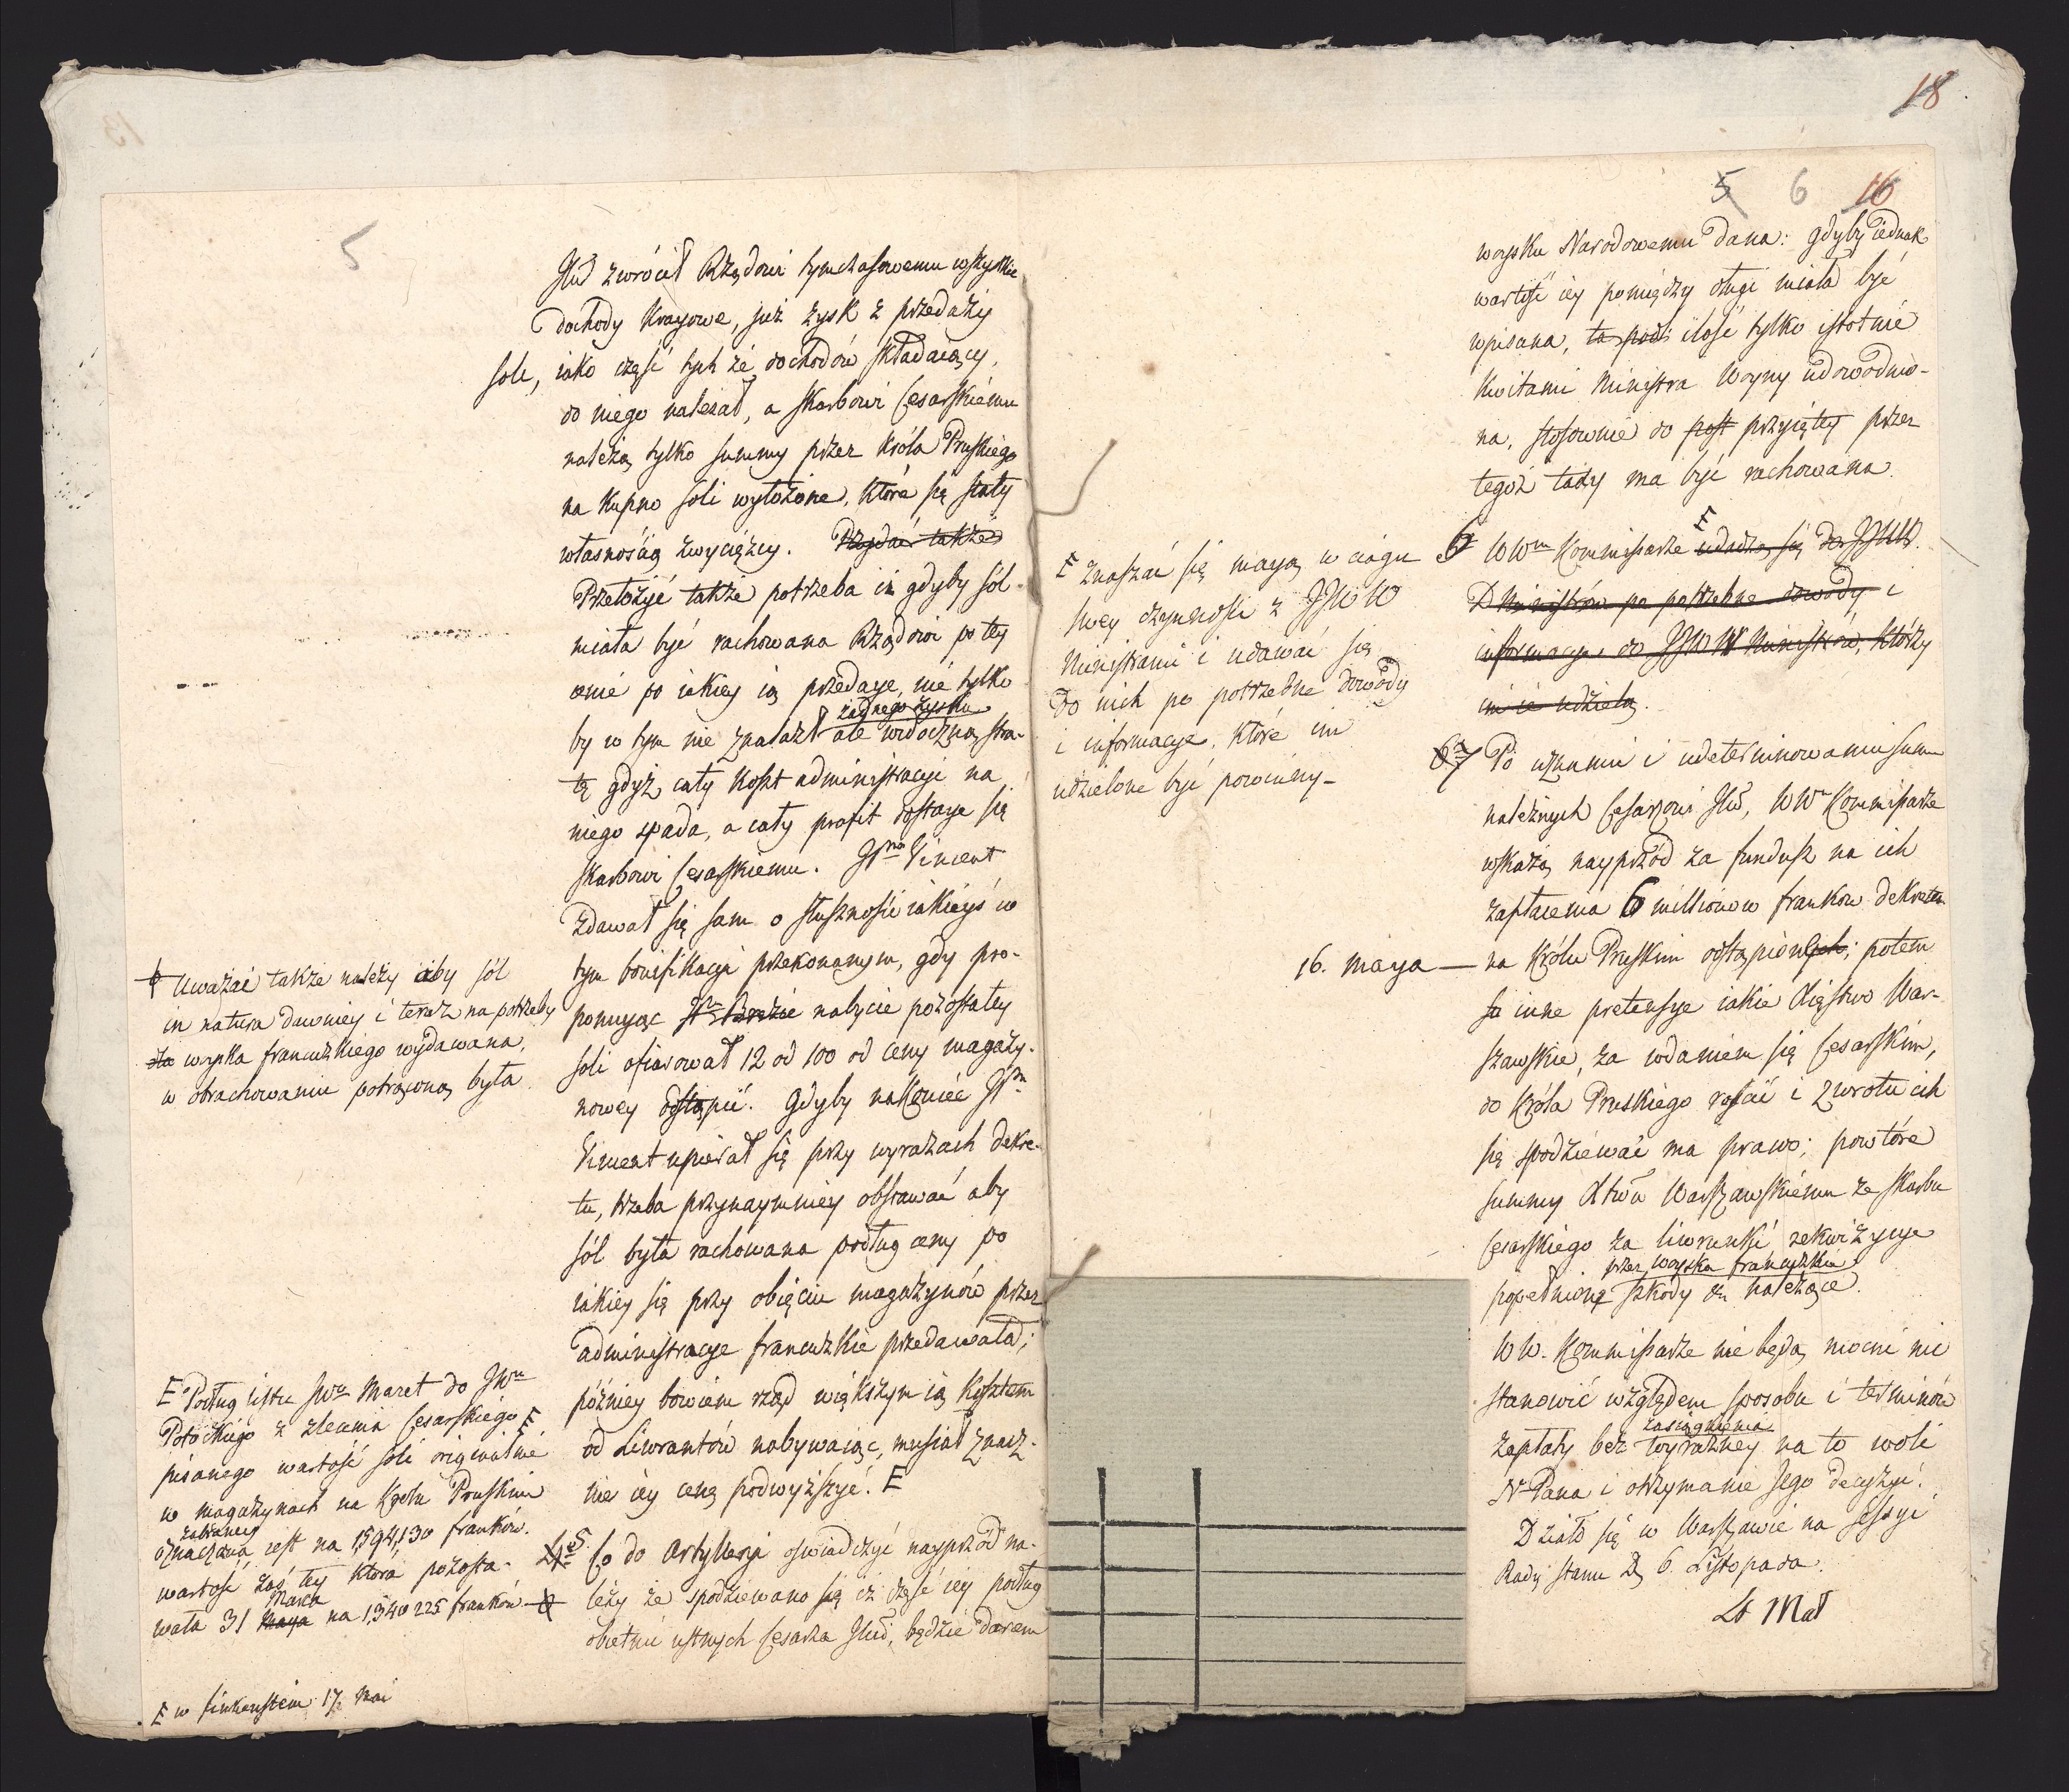 18
13
5
Jmć zwrócił Rządowi tymczasowemu wszystkie
dochody krayowe, już zysk z przedaży
soli, iako część tych że dochodów składaiący,
do niego należał, a skarbowi Cesarskiemu
należą tylko summy przez Króla Pruskiego
na kupno soli wyłożone, które się stały
własnością zwyciężcy. Przydać także
Przełożyć także potrzeba iż gdyby sól
miała być rachowana Rządowi po tey
cenie po iakiey ią przedaye, nie tylko
żadnego zysku
by w tym nie znalazł ale widoczną stra-
tę gdyż cały koszt administracyi na
niego spada, a cały profit dostaye się
skarbowi Cesarskiemu. JPan Vincent
zdawał się sam o słuszności iakieyś w
tym bonifikacyi przekonanym, gdy pro-
ponuyąc nabycie pozostałey
soli ofiarował 12 od 100 od ceny magazy-
nowey odstąpić. Gdyby nakoniec JPn
Vincent upierał się przy wyrazach dekre-
tu, trzeba przynaymniey obstawać aby
sól była rachowana podług ceny po
iakiey się przy obięciu magazynów przez
administracye francuzkie przedawała;
później bowiem rząd większym ią kosztem
od Liwrantów nabywaiąc, musiał znacz-
nie iey cenę podwyższyć. E
5 Co do Artylleryi oświadczyć nayprzód na-
leży że spodziewano się iż część iey podług
obietnic ustnych Cesarza Jmć, będzie darem
Uważać także należy aby sól
in natura dawniey i teraz na potrzeby
dla woyska francuzkiego wydawana,
w obrachowaniu potrąconą była
E Podług listu JWo Maret do JWo
Potockiego z zlecenia Cesarskiego E
pisanego wartość soli originalnie
w magazynach na Królu Pruskim
zabraney
oznaczona iest na 1,594,130 franków.
wartość zaś tey która pozosta-
Marca
wała 31 Maya na 1,340 225 franków
E w Finkenstein 17 Mai
5 6 16
woysku Narodowemu dana: gdyby iednak
wartość iey pomiędzy długi miała być
wpisana, ta podł ilość tylko istotnie
kwitami Ministra Woyny udowodnio-
na, stosownie do przyiętey przez
tegoż taxy ma być rachowana.
E
6 WWm Kommissarze udadzą się do JJWW.
Ministrów po potrzebne dowody i
informacye do JJWW Ministrów, którzy
im ie udzielą.
E Znaszać się mayą w ciągu
swey czynności z JJWW
Ministrami i udawać się
do nich po potrzebne dowody
i informacye, które im
udzielone być powinny –
7 Po uznaniu i udeterminowaniu summ
należnych Cesarzowi Jmć, WWn Kommissarze
wskażą nayprzód za fundusz na ich
zapłacenia 6 millionow franków dekretem
16. maya — na Królu Pruskim odstąpionych; potem
inne pretensye iakie Xięstwo War-
szawskie, za wdaniem się Cesarskim,
do Króla Pruskiego rościć i zwrotu ich
się spodziewać ma prawo; powtóre
summy Xtwu Warszawskiemu ze skarbu
Cesarskiego za liwerunki rekwizycye
przez woyska francuzkie
popełnione szkody należące.
WW. Kommissarze nie będą mocni nic
stanowić względem sposobu i terminów
zasiągnienia
zapłaty bez wyraźney na to woli
N Pana i otrzymanie Jego decyzyi.
Działo się w Warszawie na Sessyi
Rady Stanu D. 6. Listopada.
St Mał